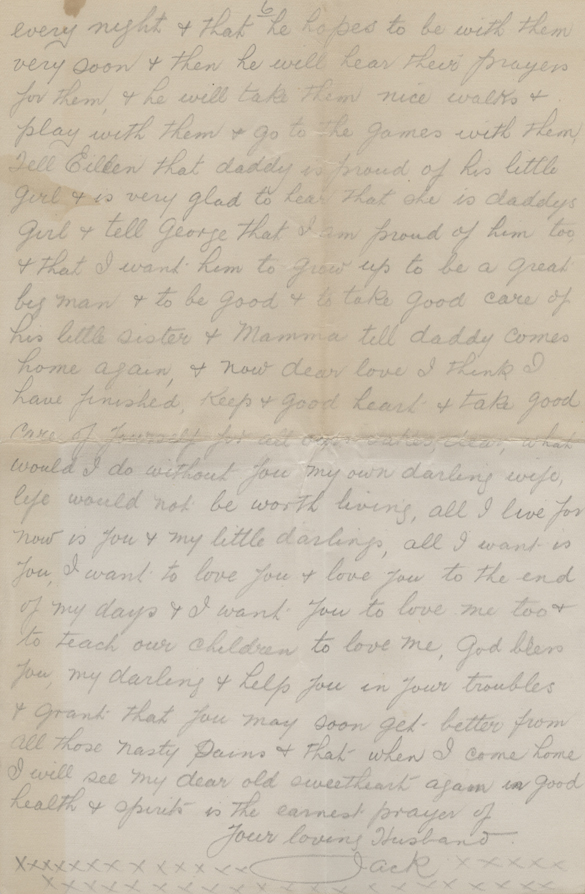 6
every night & that he hopes to be with them
very soon & then he will hear their prayers
for them, & he will take them nice walks &
play with them & go to the games with them,
Tell Eilleen that daddy is proud of his little
girl & is very glad to hear that she is daddys
girl & tell George that I am proud of him too,
& that I want him to grow up to be a great
big man & to be good & to take good care of
his little sister & Mamma till daddy comes
home again, & now dear love I think I
have finished, Keep & good heart & take good
care of yourself for all our sakes dear, what
would I do without you my own darling wife,
life would not be worth living, all I live for
now is you & my little darlings, all I want is
you, I want to love you & love you to the end
of my days & I want you to love me too &
to teach our children to love me, God bless
you, my darling & help you in your troubles
& grant that you may soon get better from
all those nasty pains & that when I come home
I will see my dear old sweetheart again in good
health & spirits is the earnest prayer of
Your loving Husband
Jack